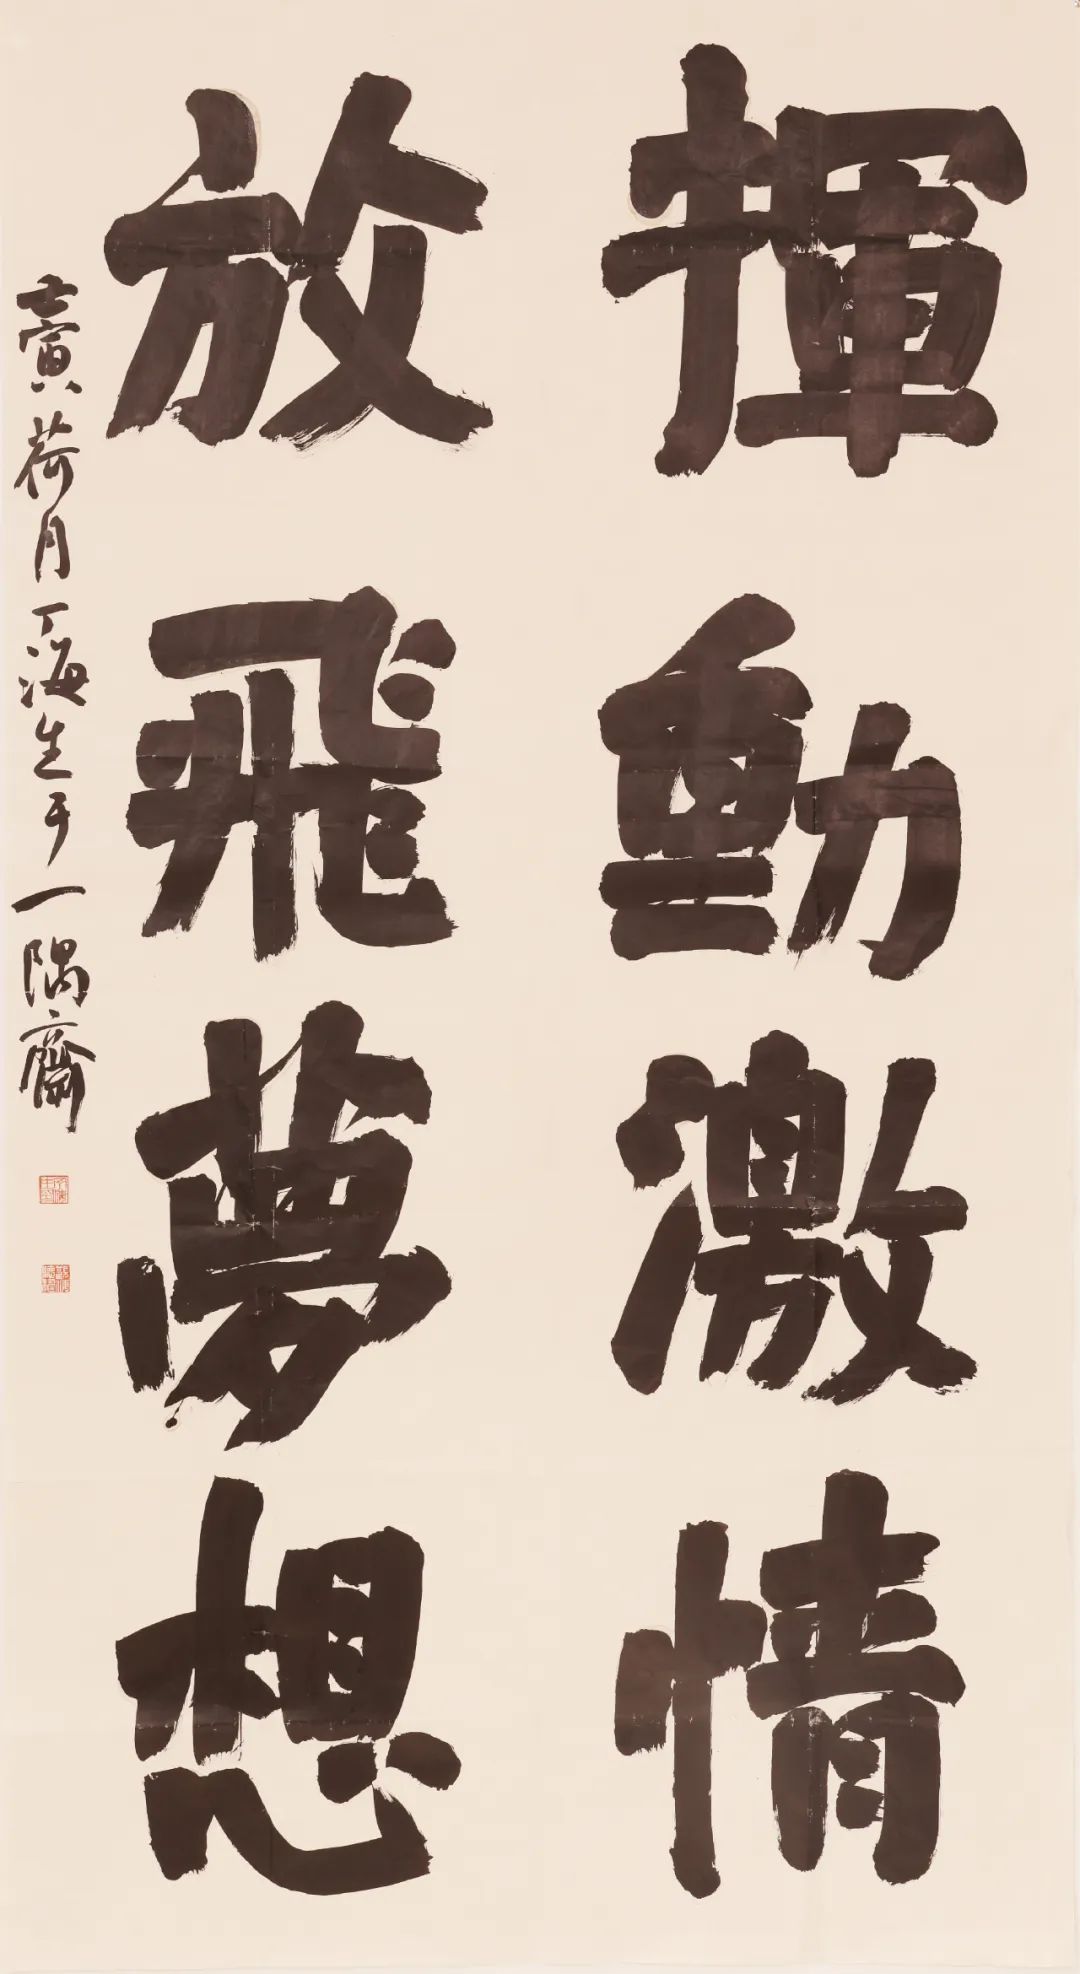 揮動激情
放飛夢想
壬寅荷月丁海生于一隅齋